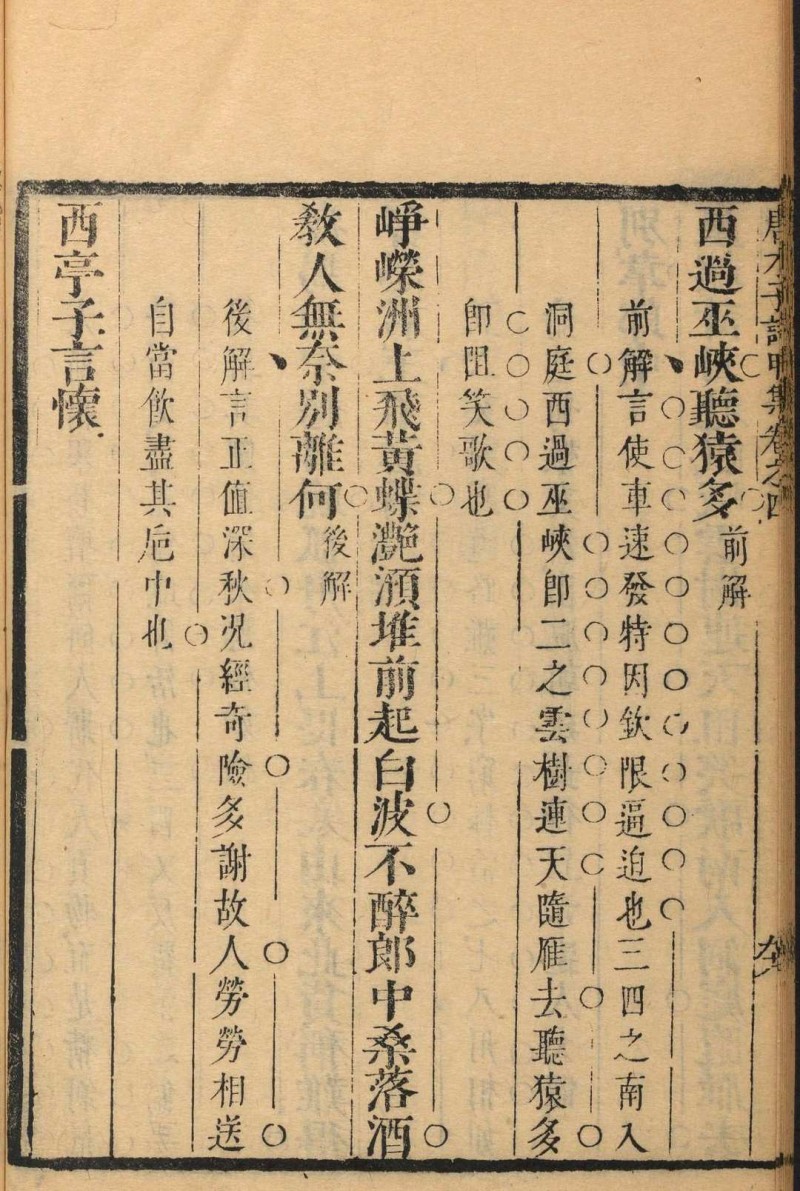 唐才子詩甲集卷之四
西過巫峽聽猿多 前解
前解言使車速發特因欽限逼迫也三四之南入
洞庭西過巫峽卽二之雲樹連天隨雁去聽猿多
卽阻笑歌也
崢嶸洲上飛黃蝶灧澦堆前起白波不醉郎中桑落酒
敎人無奈別離何 後解
後解言正值深秋况經奇險多謝故人勞勞相送
自當飲盡其巵中也
西亭子言懷